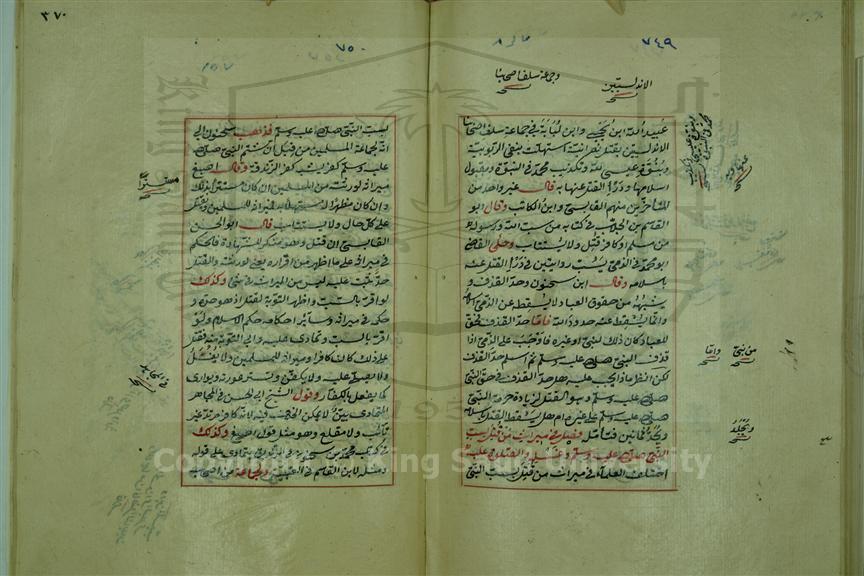 ٣٧٠
٧٤٩
وجماعة سلف اصحابنا
الاندلسيين
عبيد الله ابن يحيى وابن لبابة في جماعة سلف اصحابنا
الاندلسيين بقتل نصرانية استهلت بنفي الربوبية
وبنوة عيسى لله وتكذيب محمد في النبوة وبقبول
اسلامها ودرا القتل عنها به قال غير واحد من
المتاخرين منهم القابسي وابن الكاتب وقال ابو
القاسم بن الجلاب في كتابه من سب الله ورسوله
من مسلم او كافر قتل ولا يستتاب وحكى القاضي
ابو محمد في الذمي يسب روايتين في درا القتل عنه
باسلامه وقال ابن سحنون وحد القذف و
شبهه من حقوق العباد لا يسقط عن الذمي اسلامه
وانما يسقط عنه حدود الله فاما حد القذف فحق
للعباد كان ذلك لنبي او غيره فاوجب على الذمي اذا
قذف النبي صلى الله عليه وسلم ثم اسلم حد القذف
لكن انظر ماذا يجب عليه هل حد القذف في حق النبي
صلى الله عليه وسلم وهو القتل لزيادة حرمة النبي
صلى الله عليه وسلم على غيره ام هل يسقط القتل باسلامه
ويحد ثمانين فتأمله فصل في ميراث من قتل بسب
النبي صلى الله عليه وسلم وغسله والصلاة عليه
اختلف العلماء في ميراث من قتل بسب النبي
من نبي
واما
ويجلد
٧٥٠
لسب النبي صلى الله عليه وسلم فذهب سحنون الى
انه لجماعة المسلمين من قبل ان شتم النبي صلى الله
عليه وسلم كفر يشبه كفر الزندقة وقال اصبغ
ميراثه لورثته من المسلمين ان كان مستترا بذلك
وان كان مظهرا له مستهلا به فميراثه للمسلمين ويقتل
على كل حال ولا يستتاب قال ابو الحسن
القابسي ان قتل وهو منكر للشهادة فالحكم
في ميراثه على ما اظهر من اقراره يعني لورثته والقتل
حد ثبت عليه ليس من الميراث في شئ وكذلك
لو اقر بالسب واظهر التوبة لقتل اذ هو حده و
حكمه في ميراثه وسائر احكامه حكم الاسلام ولو
اقر بالسب وتمادى عليه وابى التوبة منه فقتل
على ذلك كان كافرا وميراثه للمسلمين ولا يغسل
ولا يصلى عليه ولا يكفن وتستر عورته ويوارى
كما يفعل بالكفار وقول الشيخ ابي الحسن في المجاهر
المتمادي بين لا يمكن الخلاف فيه لانه كافر مرتد غير
تائب ولا مقلع وهو مثل قول اصبغ وكذلك
في كتاب محمد بن سحنون في الزنديق يتمادى على قوله
ومثله لابن القاسم في العتبية والجماعة من اصحاب
مستترا